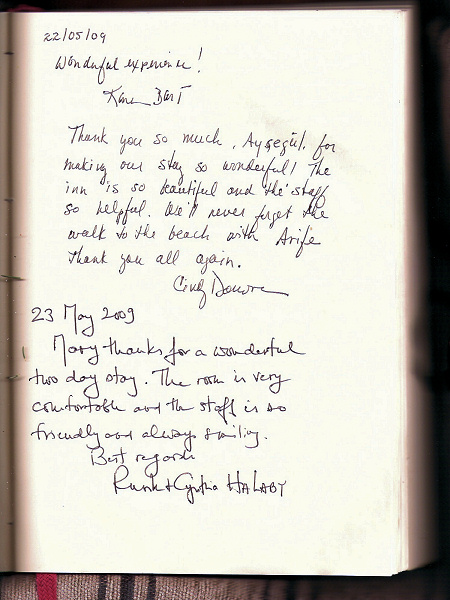 22/05/09
Wonderful experience!
Karen
Thank you so much, Ayşegül, for
making our stay so wonderful! The
inn is so beautiful and the staff
so helpful. We'll never forget the
walk to the beach with Arife
Thank you all again.
Cindy
23 May 2009
Many thanks for a wonderful
two day stay. The room is very
comfortable and the staff is so
friendly and always smiling.
Best regards
& Cynthia HALABY